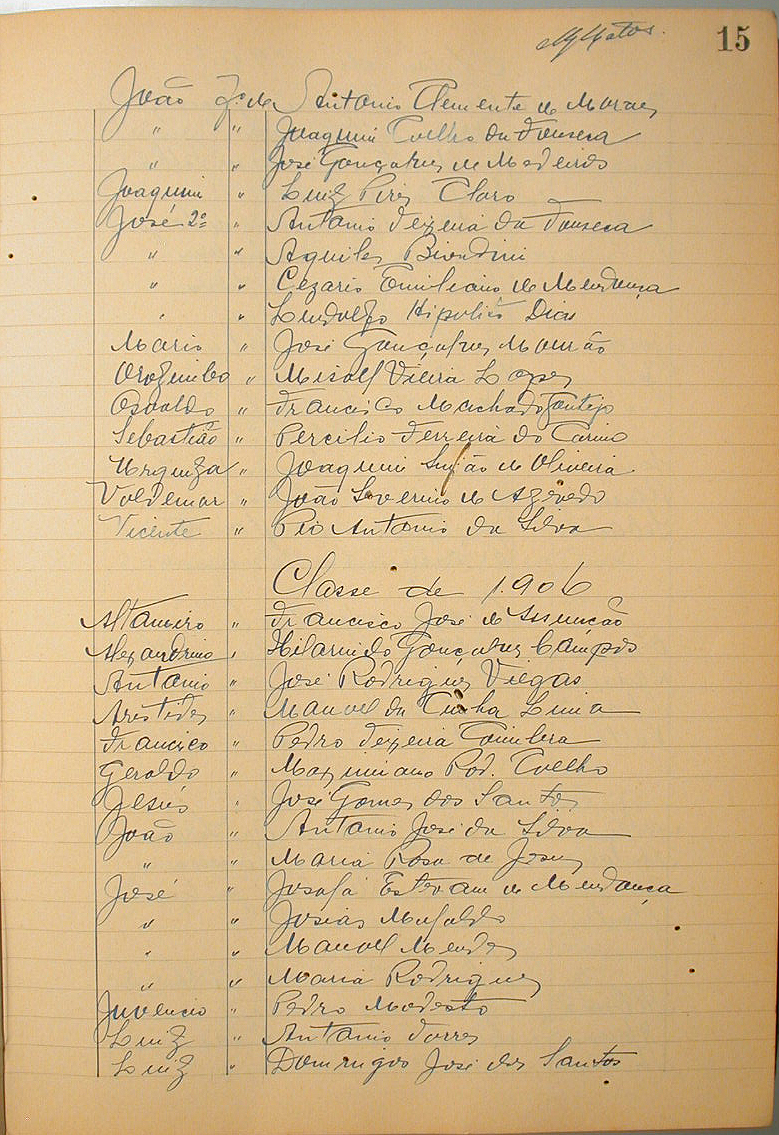 Mattos. 15
João fº de Antonio Clemente de Moraes
" " Joaquim Coelho da Fonseca
" " José Gonçalves de Medeiros
Joaquim " Luiz Pires Claro
José 2º " Antonio Teixeira da Fonseca
" " Aquiles Biondini
" " Cezario Emiliano de Mendonça
" " Lindolfo Hipolito Dias
Mario " José Gonçalves Mourão
Orozimbo " Misael Vieira Lopes
Osvaldo " Francisco Machado Fontijo
Sebastião " Percilio Ferreira do Carmo
Urquiza " Joaquim de Oliveira
Valdemar " João Severino de Azevedo
Vicente " Pio Antonio da Silva
Classe de 1.906
Altamiro " Francisco José de Assunção
Alexandrino " Hilarindo Gonçalves Campos
Antonio " José Rodrigues Viegas
Aristides " Manoel da Cunha Lima
Francisco " Pedro Teixeira Coimbra
Geraldo " Maximiano Rod. Coelho
Jesus " José Gomes dos Santos
João " Antonio José da Silva
" " Maria Rosa de Jesus
José " Josafá Estevam de Mendonça
" " Josias Mafaldo
" " Manoel Mendes
" " Maria Rodrigues
Juvencio " Pedro Modesto
Luiz " Antonio Torres
Luiz " Domingos José dos Santos